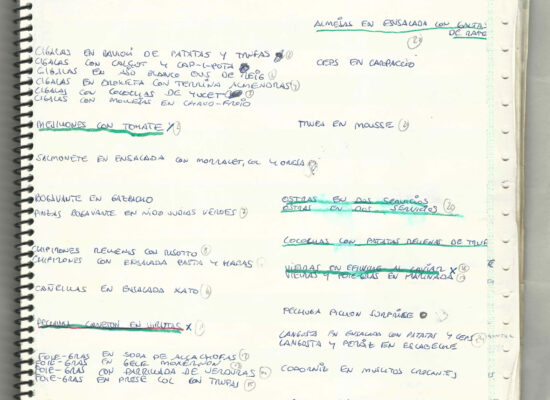 ALMEJAS EN ENSALADA CON
DE RAPE
CIGALAS EN RAVIOLI DE PATATAS Y TRUFAS
CIGALAS CON CALÇOT Y CAP-I-POTA
CEPS EN CARPACCIO
CIGALAS EN AJO BLANCO
CIGALAS EN BROCHETA CON TERRINA ALMENDRAS
CIGALAS CON COCOCHAS DE
CIGALAS CON MOLLEJAS EN
MEJILLONES CON TOMATE X
TRUFA EN MOUSSE
SALMONETE EN ENSALADA CON COL Y OREJA
BOGAVANTE EN GAZPACHO
OSTRAS EN DOS SERVICIOS
OSTRAS EN DOS SERVICIOS
PINZAS BOGAVANTE EN NIDO JUDIAS VERDES
COCOCHAS CON PATATAS RELLENAS DE
CHIPIRONES RELLENOS CON RISOTTO
CHIPIRONES CON ENSALADA PASTA Y HABAS
VIEIRAS EN AL CAVIAR X
VIEIRAS Y EN MARINADA
CAÑAILLAS EN ENSALADA XATO
PECHUGA PICHON SURPRISE
PECHUGA CANETON EN VIRUTAS X
LANGOSTA EN ENSALADA CON PATATAS Y CEPS
LANGOSTA Y PERDIZ EN ESCABECHE
FOIE-GRAS EN SOPA DE ALCACHOFAS
FOIE-GRAS EN GELE
FOIE-GRAS CON PARRILLADA DE VERDURAS
CODORNIZ EN MUSLITOS CROCANTES
FOIE-GRAS EN PRESSE COL CON TRUFAS